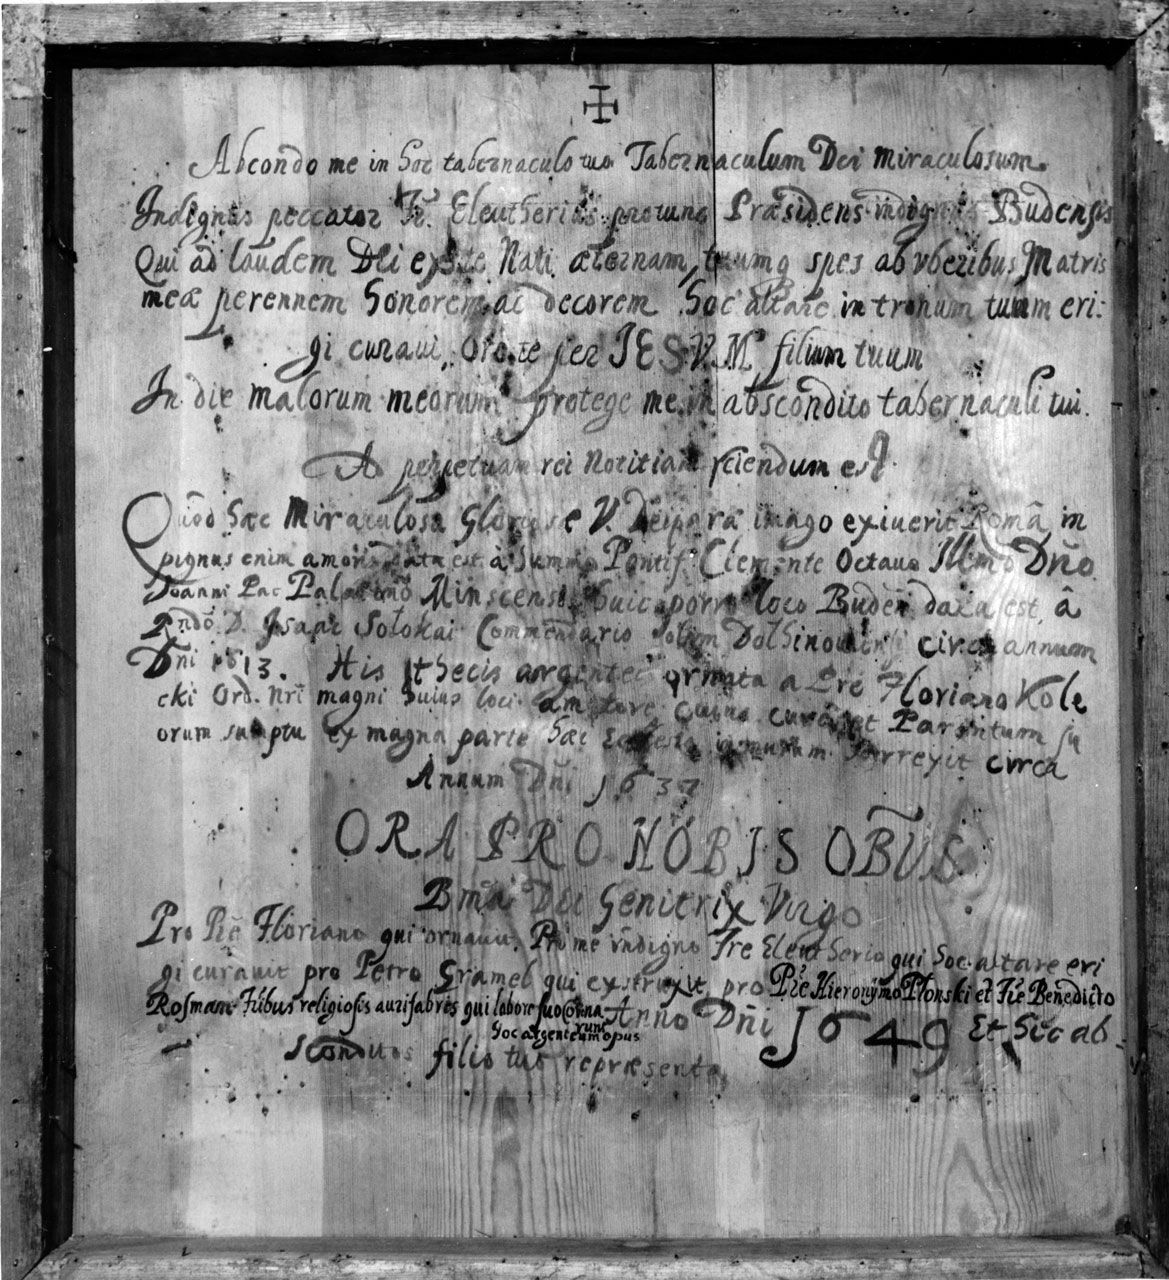 Abcondo me in hoc tabernaculo tuo Tabernaculum Dei miraculosum
Indignus peccator Fr. Eleutherius protunc Præsidens indignus Budensis
Qui ad laudem Dei Nati æternam, tuumq spes ab vberibus Matris
meæ perennem honorem ac decorem hoc altare in tronum tuum eri:
gi curaui, Oro te per IESVM filium tuum
In die malorum meorum protege me in abscondito tabernaculi tui.
A perpetuam rei Notitiam sciendum est
Quod hæc Miraculosa Gloriosæ V. Deiparæ imago exiuerit Româ, in
pignus enim amoris data est à Summo Pontif. Clemente Octauo Illmo Dño
Joanni Pac Palatino Minscensi, huic porro loco Buden data est, â
Rñdo D. Isaac Solokai Commendario Dolhinouiensi circa annum
Dñi 1613. His thecis argenteis ornata a Pre Floriano Kole
cki Ord. Nri magni huius loci amatore cuius cura et Parentum su
orum sumptu ex magna parte hæc Ecclesia surrexit circa
Annum Dñi 1637
ORA PRO NOBIS OBUS
Bma Dei Genitrix Virgo
Pro Pre Floriano qui ornauit, Pro me indigno Fre Eleutherio qui hoc altare eri
gi curauit pro Petro Gramel qui exstruxit, pro Pre Hieronymo Plonski et Fre Benedicto
Rosman Fribus religiosis aurifabres qui labore suo orna
runt
hoc argenteum opus
Anno Dñi 1649 Et Sic ab
sconditos filio tuo repræsenta